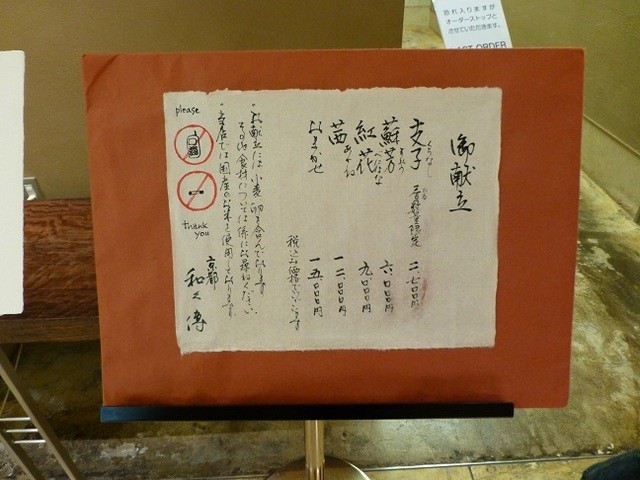 御献立
支子 くちなし
二、七〇〇円
蘇芳 すおう 六、〇〇〇円
紅花 べにばな 九、〇〇〇円
茜 あかね 一二、〇〇〇円
おまかせ 一五、〇〇〇円
税込価格でございます
・お献立には小麦、卵を含んでおります
その他食材については係にお尋ねください
・当店では国産のお米を使用しております
京都
和久傳
please
thank
you
恐れ入りますが
オーダーストップと
させていただきます。
LAST ORDER